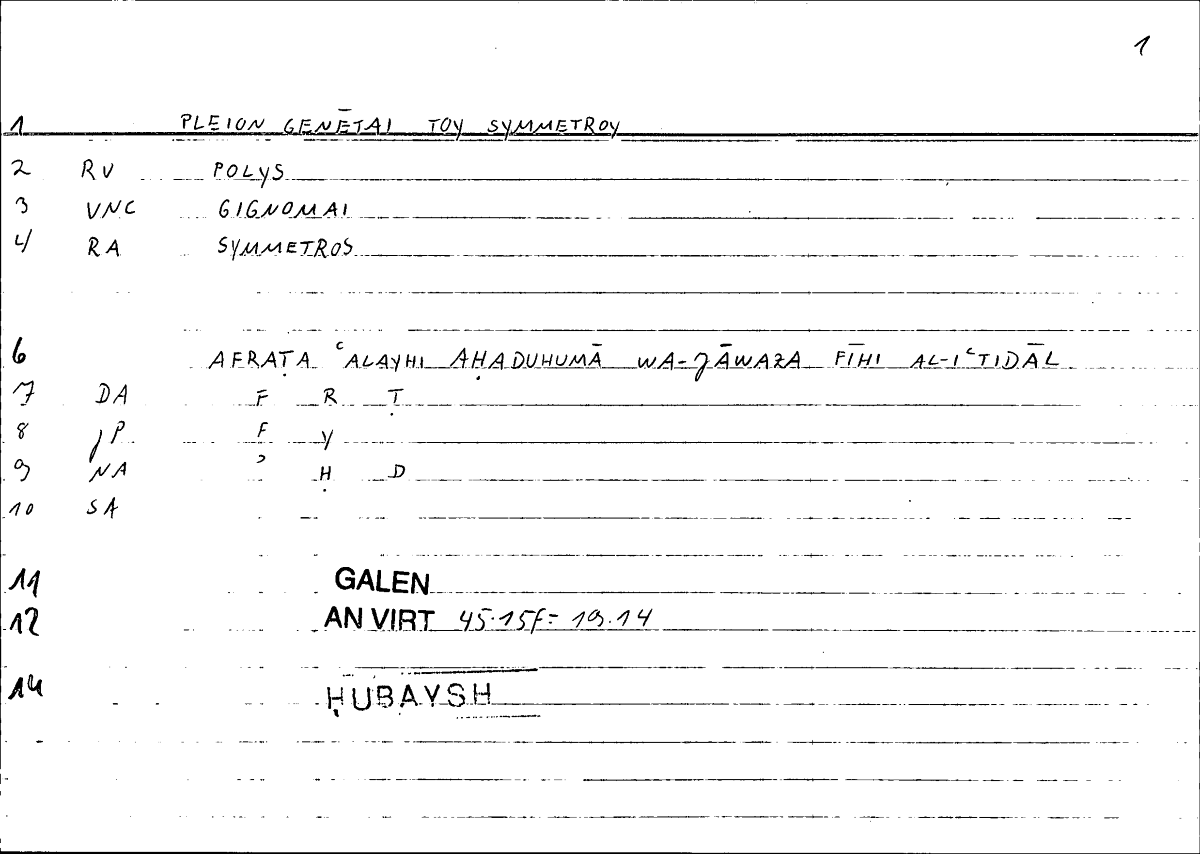 1
1 PLEION GENĒTAI TOY SYMMETROY
2 RV POLYS
3 VNC GIGNOMAI
4 RA SYMMETROS
6 AFRAṬA ʿALAYHI AḤADUHUMĀ WA-JĀWAZA FĪHI AL-IʿTIDĀL
7 DA F R Ṭ
8 JP F Y
9 NA ʾ Ḥ D
10 SA
11 GALEN
12 AN VIRT 45.15f = 19.14
14 ḤUBAYSH